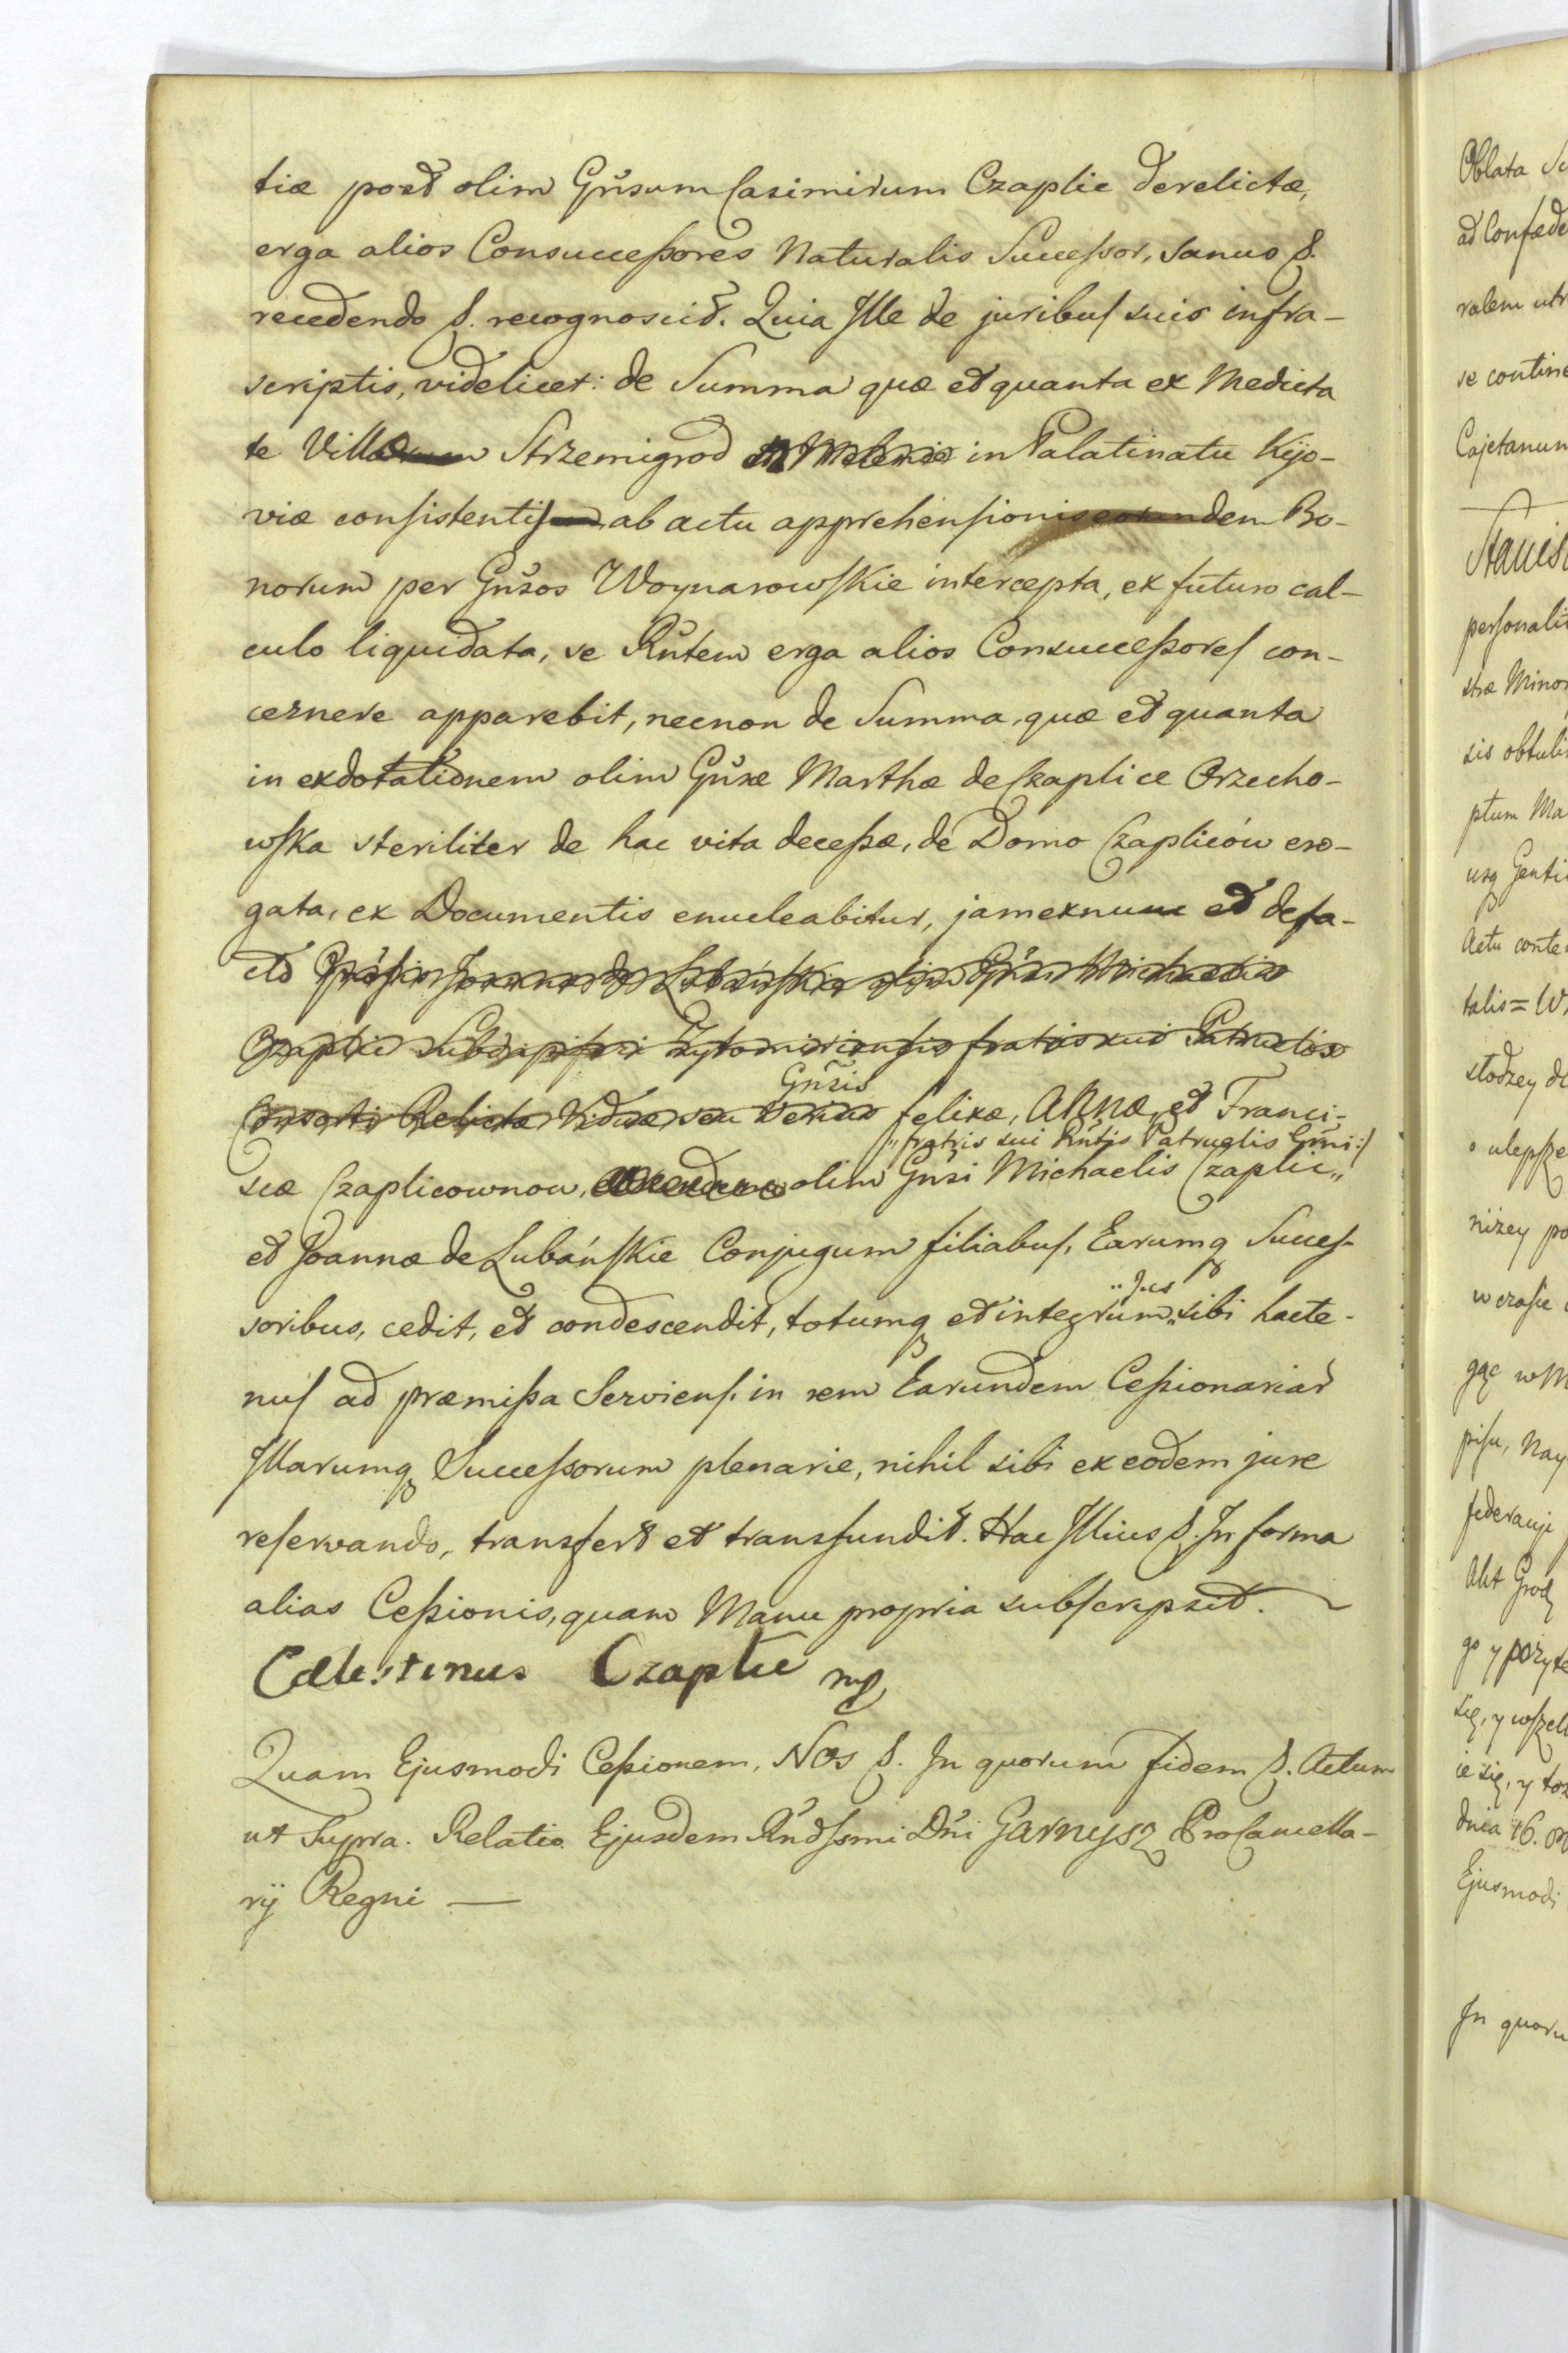 tiæ post olim Gnsum Casimirum Czaplic derelictæ,
erga alios Consuccessores Naturalis Successor, sanus &.
recedendo &. recognoscit. Quia Ille de juribus suis infra-
scriptis, videlicet: de Summa quæ et quanta ex Medieta
te Villæ Strzemigrod in Palatinatu Kijo-
viæ consistentis ab actu apprehensionis eorundem Bo-
norum per Gnsos Woynarowskie intercepta, ex futuro cal-
culo liquidata, se Rntem erga alios Consuccessores con-
cernere apparebit, necnon de Summa, quæ et quanta
in exdotationem olim Gnsæ Marthæ de Czaplice Orzecho-
wska steriliter de hac vita decessæ, de Domo Czapliców ero-
gata, ex Documentis enucleabitur, jam ex nunc et defa-
cto Joannæ de Lubańskie olim Gnsi Michaelis
Czaplic Subdapiferi Zytomiriensis fratris sui Patruelis
Consorti Relictæ Viduæ seu verius Gnsis felixæ, Annæ, et Franci-
„fratris sui Rntis Patruelis Gnsi:/
scæ Czaplicownow, olim Gnsi Michaelis Czaplic„
et Joannæ de Lubańskie Conjugum filiabus, Earumq Succes-
soribus, cedit, et condescendit, totumq et integrum „Jus„ sibi hacte-
nus ad præmissa Serviens. in rem Earundem Cessionariar
Illarumq Successorum plenarie, nihil sibi ex eodem jure
reservando, transfert et transfundit. Hac Illius &. In forma
alias Cessionis, quam Manu propria subscripsit.
Cælestinus Czaplic mp
Quam Ejusmodi Cessionem, Nos &. In quorum fidem &. Actum
ut Supra. Relatio Ejusdem Rndssmi Dni Garnysz ProCancella-
rij Regni —
Oblata
ad Confæde
ralem utr
se contine
Cajetanum
Stanis
personalit
stræ Minor
sis obtuli
ptum Ma
usq Genti
Actu conte
talis = W
stodzey
o ulepsze
niżey po
w czasie
gąc w M
pisu, Nay
federacyi
Akt Grod
go y pozyte
się, y wszel
ie się, y toż
dnia 16.
Ejusmodi
In quoru